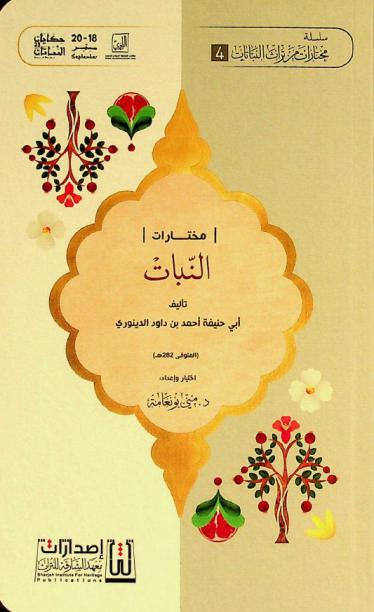 سلسلة
مختارات من تراث النباتات 4
18-20
سبتمبر
September
حكايات
النباتات
| مختارات |
النّبات
تأليف
أبي حنيفة أحمد بن داود الدينوري
(المتوفى 282هـ)
اختيار وإعداد:
د. منّي بونعامة
إصدارات
معهد الشارقة للتراث
Sharjah Institute For Heritage
Publications